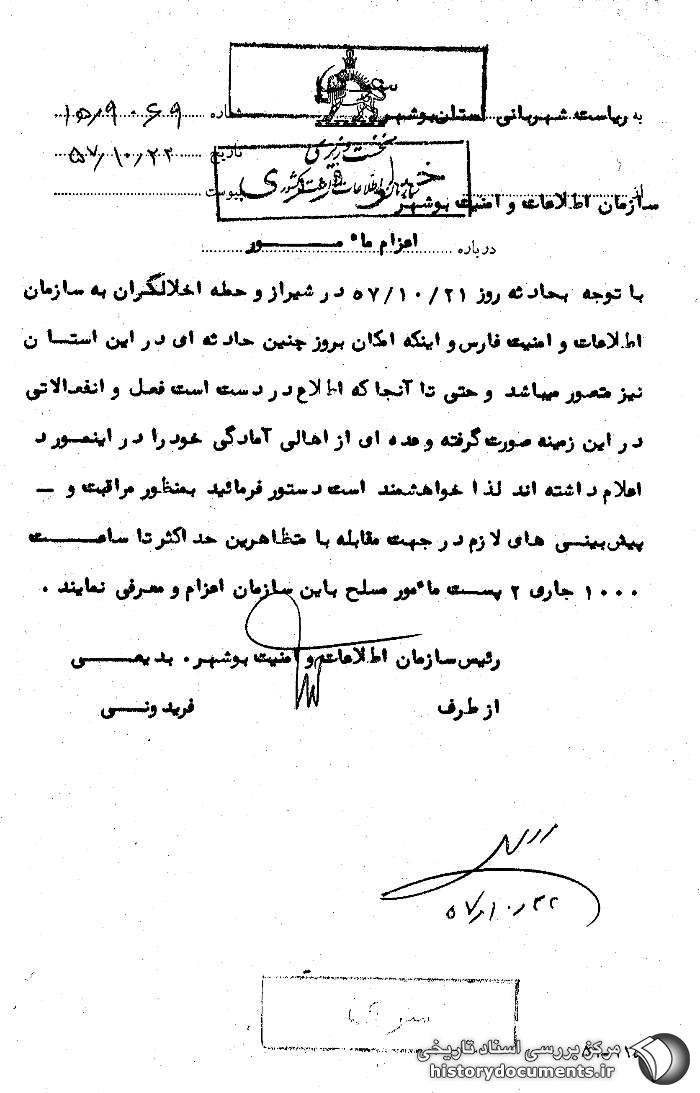 به ریاست شهربانی استان بوشهر
شماره ۱۵۹۰۶۹
نخست وزیری
تاریخ ۵۷/۱۰/۲۲
سازمان اطلاعات و امنیت کشور
پیوست
از سازمان اطلاعات و امنیت بوشهر
درباره اعزام مأمور
با توجه بحادثه روز ۵۷/۱۰/۲۱ در شیراز و حمله اخلالگران به سازمان
اطلاعات و امنیت فارس و اینکه امکان بروز چنین حادثه ای در این استان
نیز متصور میباشد و حتی تا آنجا که اطلاع در دست است فعل و انفعالاتی
در این زمینه صورت گرفته و عده ای از اهالی آمادگی خود را در اینمورد
اعلام داشته اند لذا خواهشمند است دستور فرمائید بمنظور مراقبت و ـ
پیش بینی های لازم در جهت مقابله با متظاهرین حداکثر تا ساعت
۱۰۰۰ جاری ۲ پست مأمور مسلح باین سازمان اعزام و معرفی نمایند .
رئیس سازمان اطلاعات و امنیت بوشهر . بدیعی
از طرف فریدونی
۵۷/۱۰/۲۲
سری
مرکز بررسی اسناد تاریخی
historydocuments.ir